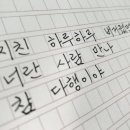 지친 하루하루
너란 사람 만나
참 다행이야